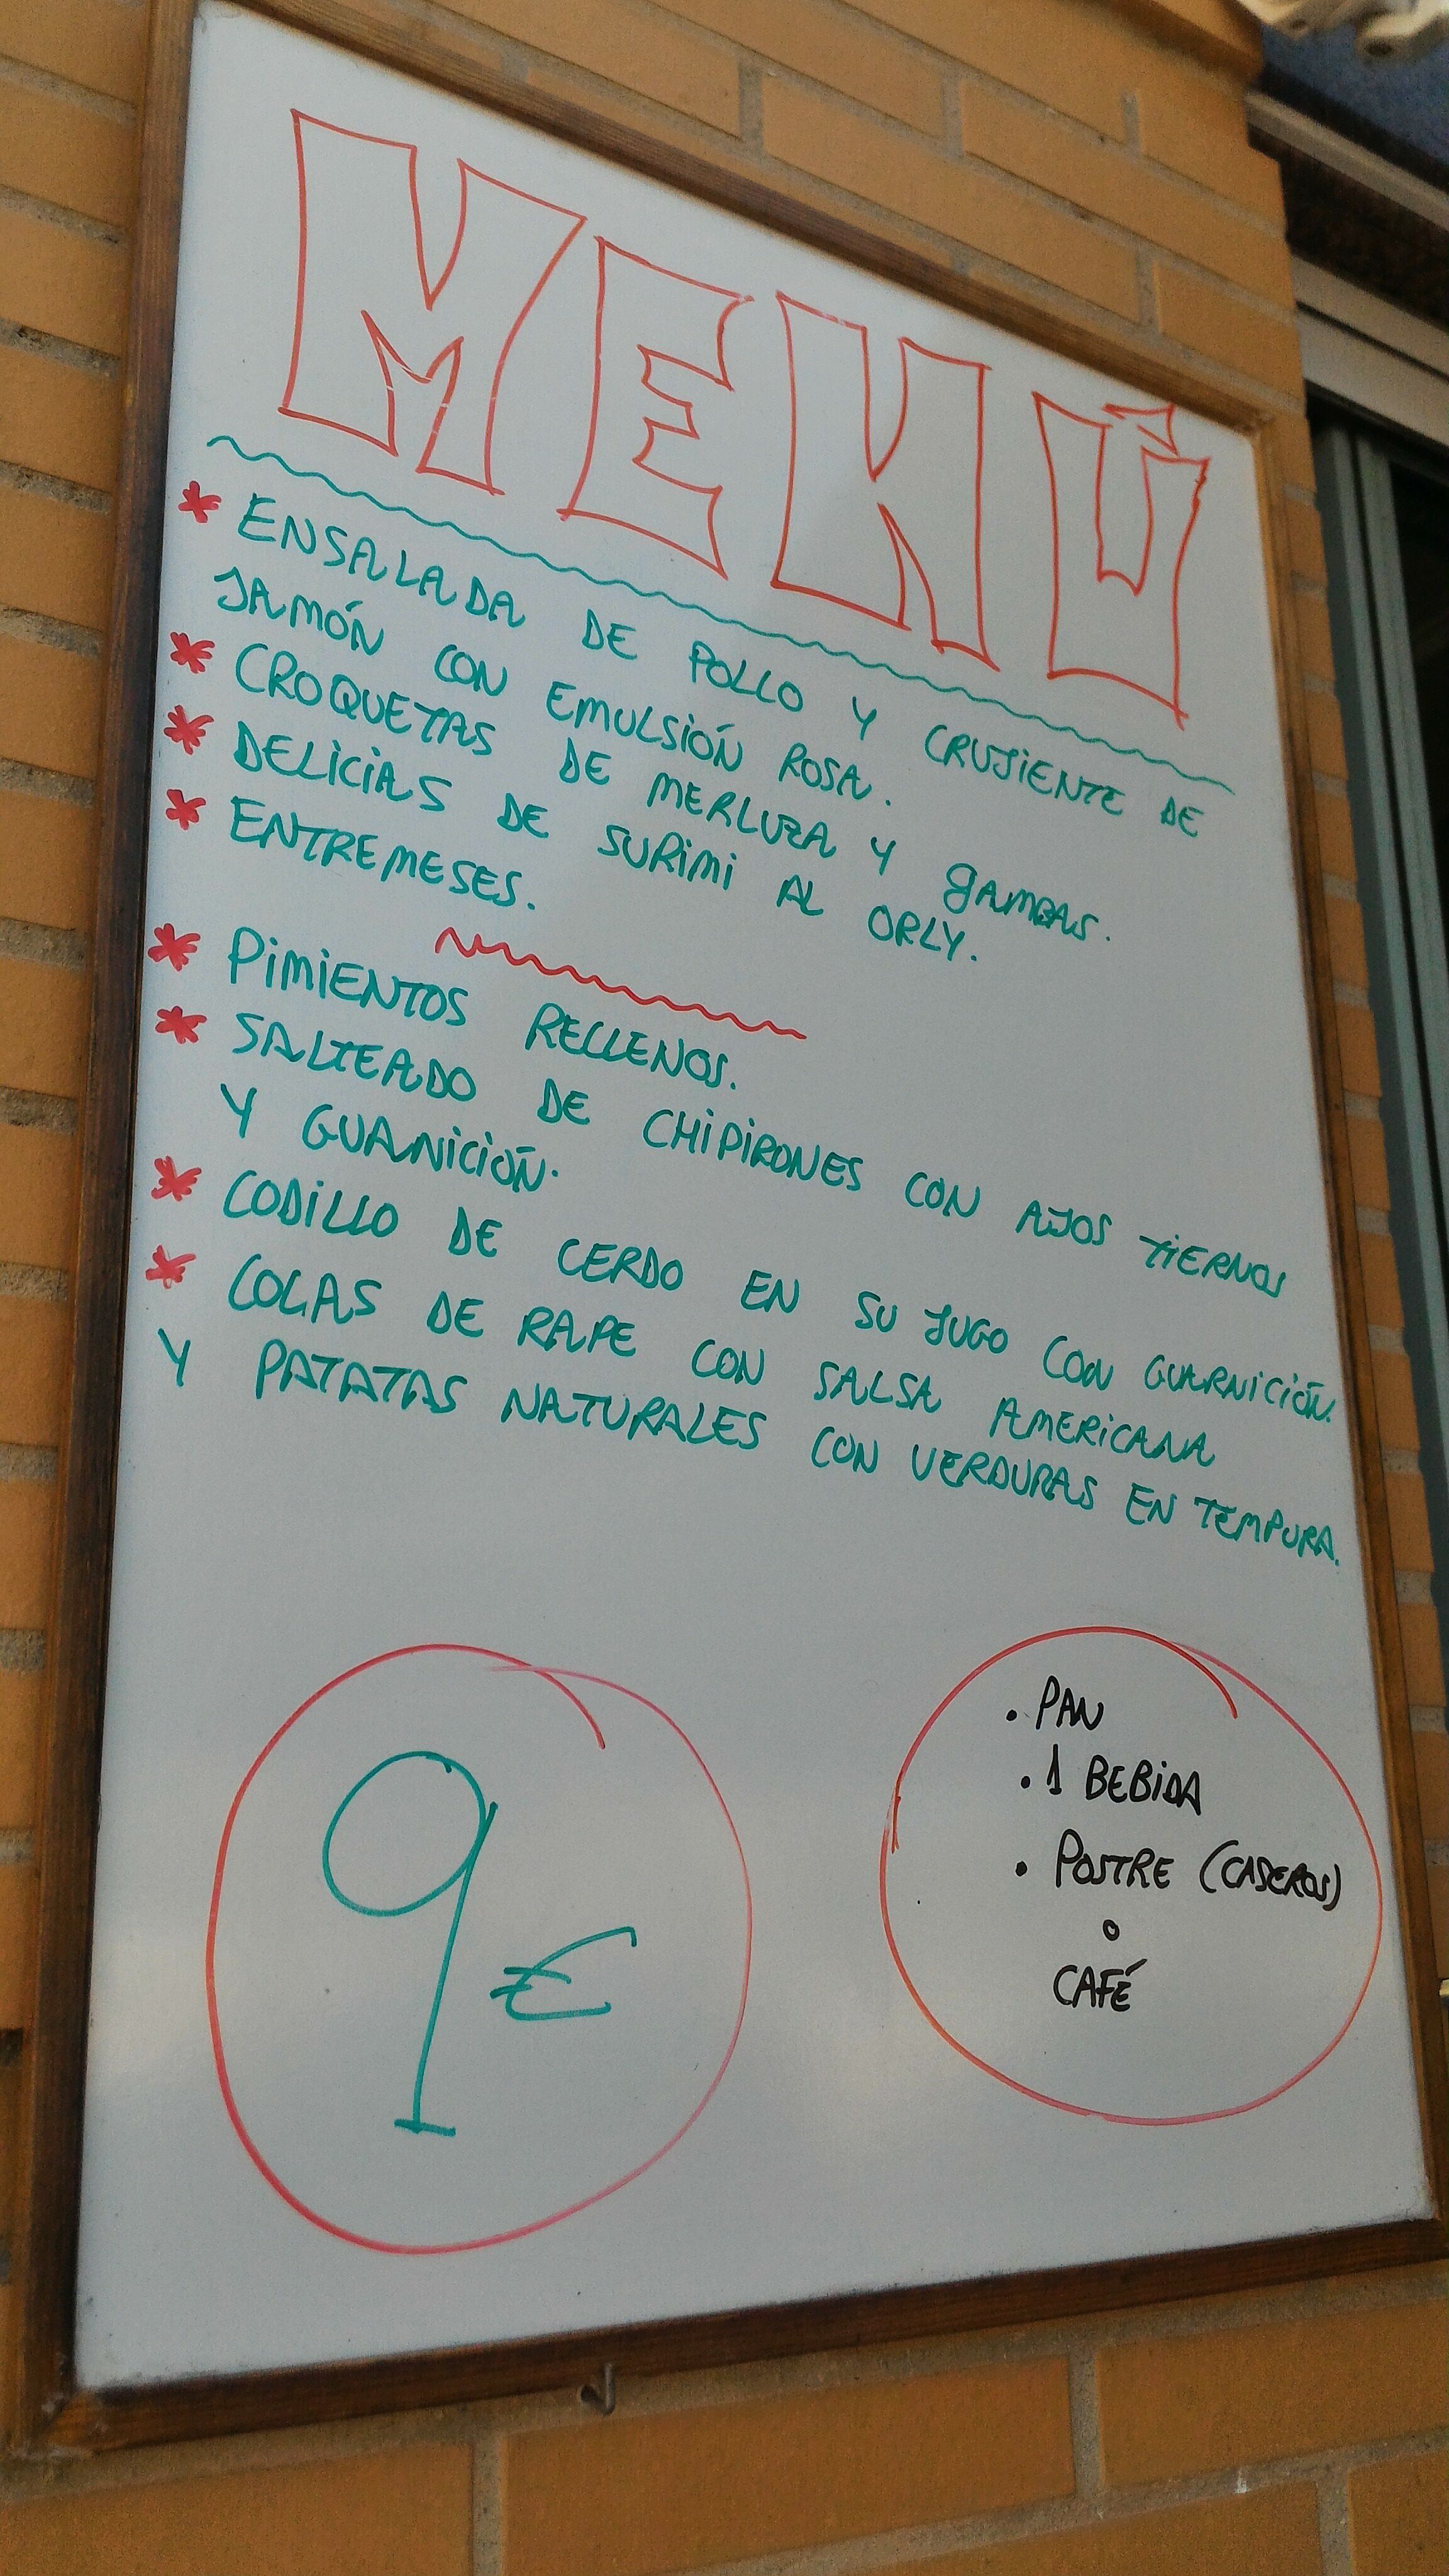 MENÚ
* ENSALADA DE POLLO Y CRUJIENTE DE
JAMÓN CON EMULSIÓN ROSA.
* CROQUETAS DE MERLUZA Y GAMBAS.
* DELICIAS DE SURIMI AL ORLY.
* ENTREMESES.
* PIMIENTOS RELLENOS.
* SALTEADO DE CHIPIRONES CON AJOS TIERNOS
Y GUANICIÓN.
* CODILLO DE CERDO EN SU JUGO CON GUARNICIÓN.
* COLAS DE RAPE CON SALSA AMERICANA
Y PATATAS NATURALES CON VERDURAS EN TEMPURA.
9 €
. PAN
. 1 BEBIDA
. POSTRE (CASEROS)
o
CAFÉ